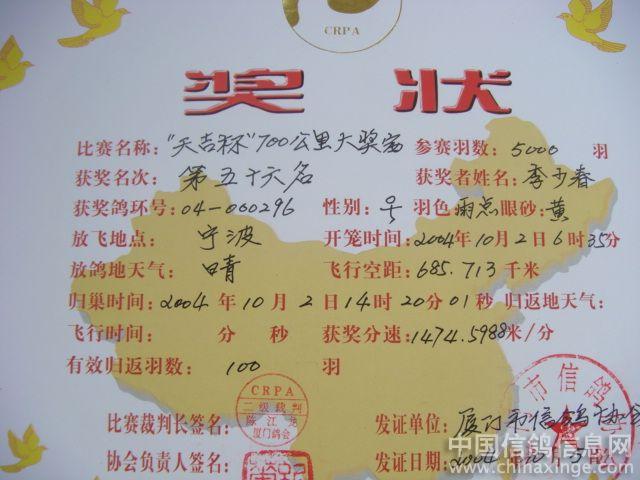 CRPA
奖 状
比赛名称: "天吉杯"700公里大奖赛 参赛羽数: 5000 羽
获奖名次: 第五十六名 获奖者姓名: 李少春
获奖鸽环号: 04-000296 性别: ♀ 羽色 雨点 眼砂: 黄
放飞地点: 宁波 开笼时间: 2004年10月2日6时35分
放鸽地天气: 晴 飞行空距: 685.713千米
归巢时间: 2004年10月2日14时20分01秒 归返地天气:
飞行时间: 分 秒 获奖分速: 1474.5988米/分
有效归返羽数: 100 羽
CRPA
二级裁判
陈江
厦门鸽会
市信鸽
比赛裁判长签名: 发证单位: 厦门市信鸽协会
协会负责人签名: 发证日期: 2004年10月
中国信鸽信息网
www.chinaxinge.com